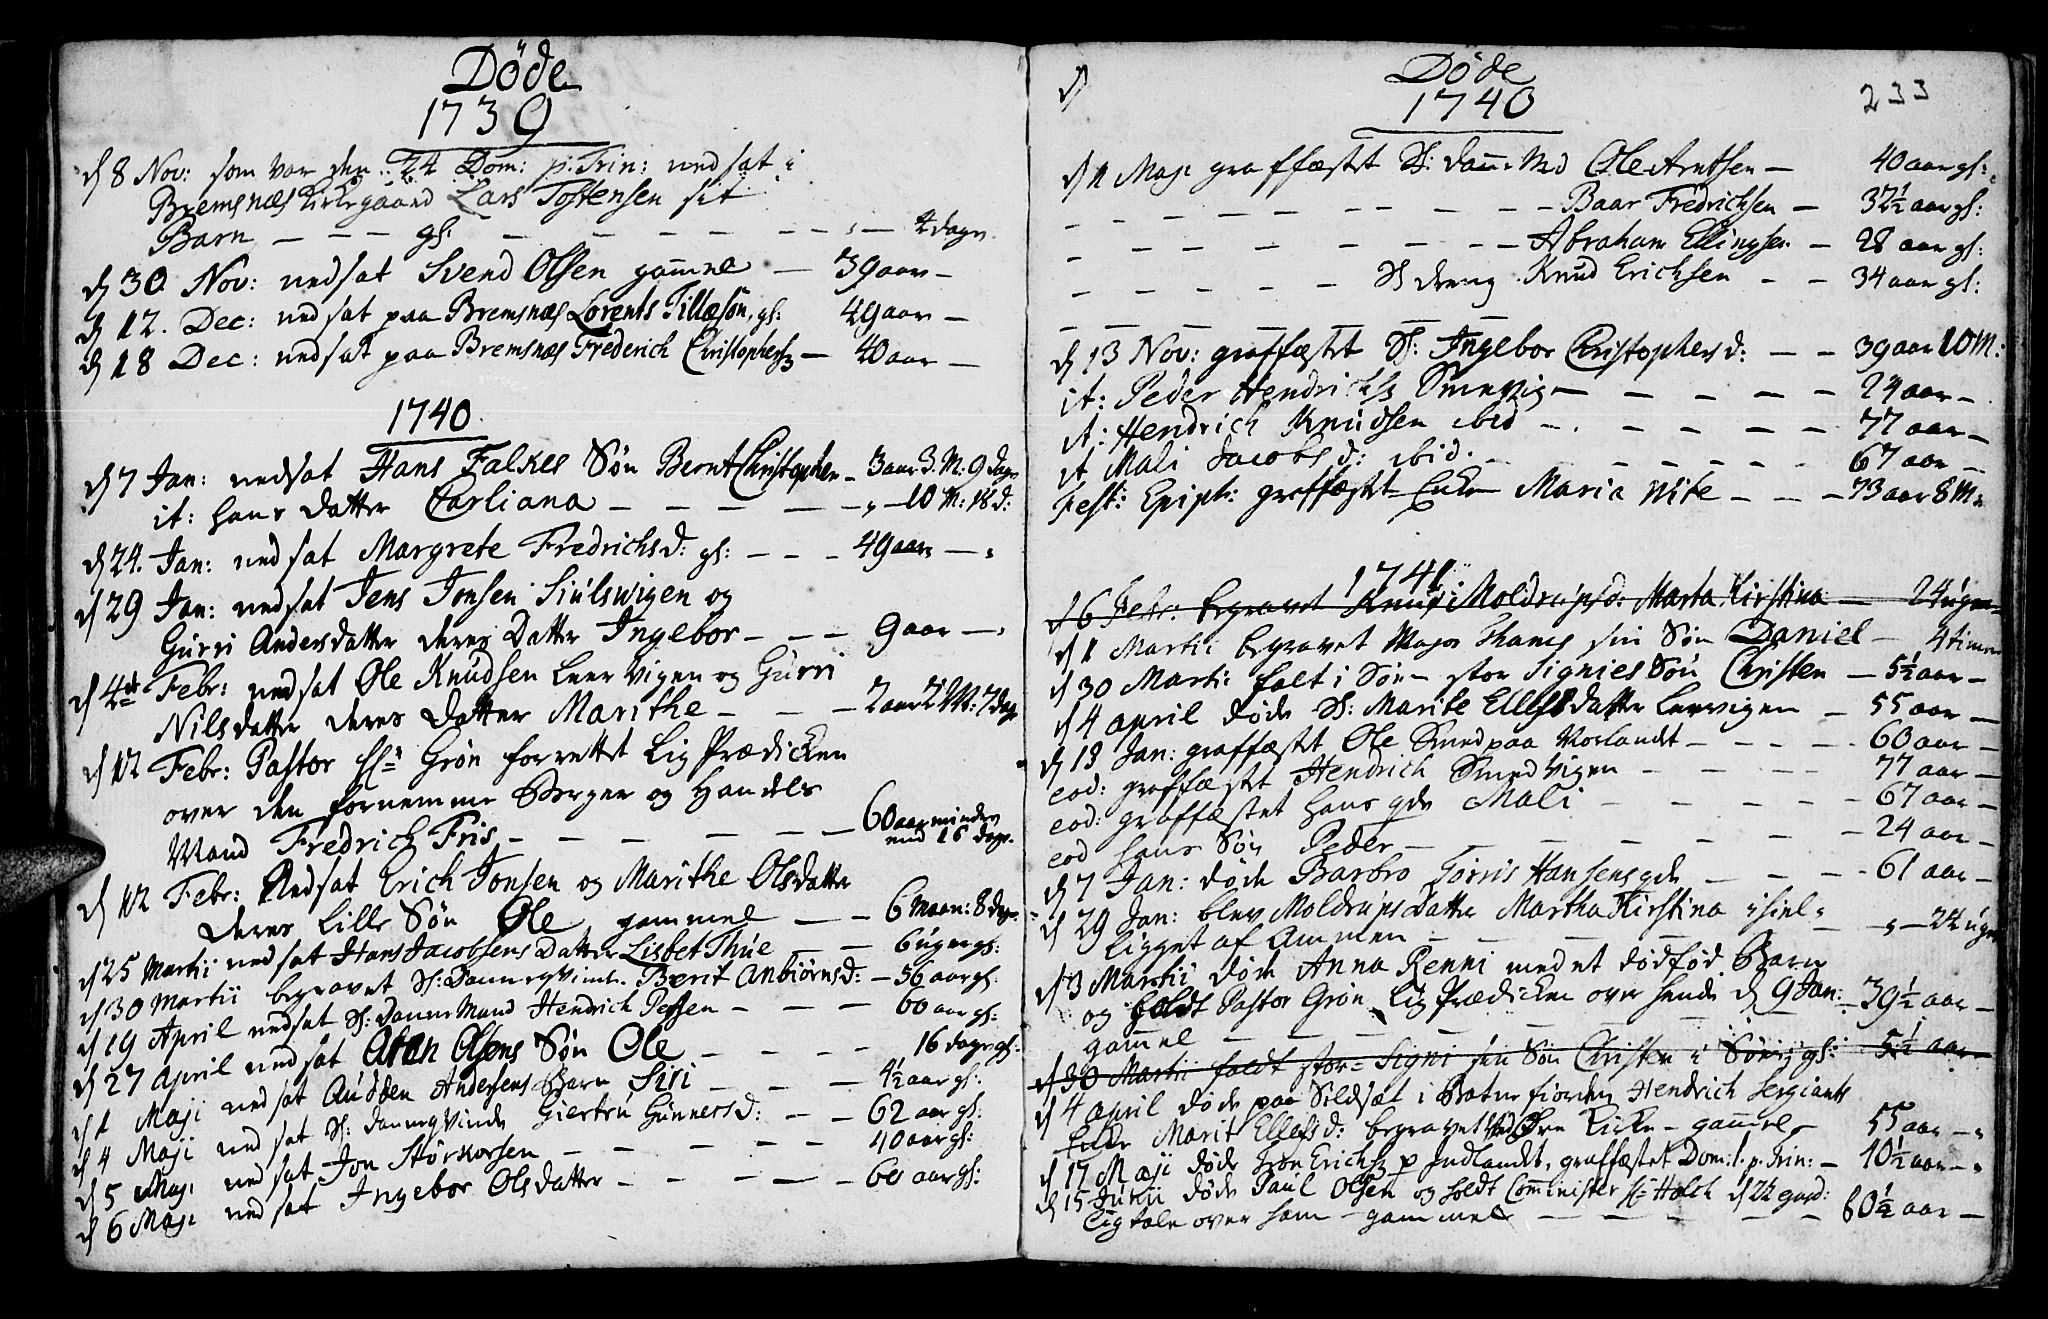 Døde
1739
d 8 Nov: som var den 24 Dom: p. Trin: nedsat i
Bremsnæs Kirkegaard Lars Tostensen sit
Barn — — — gl: — — — — — — 4 dage
d 30 Nov: nedsat Svend Olsen gamme — 39 aar —
d 12. Dec: nedsat paa Bremsnæs Lorents Tillæsøn, gl: 49 aar —
d 18 Dec: nedsat paa Bremsnæs Frederich Christophers — 40 aar —
1740
d 7 Jan: nedsat Hans Falkes Søn Bernt Christopher — 3 aar 3. M: 9 dage
it: hans datter Carliana — — — — — „ — 10 M: 18 d:
d 24. Jan: nedsat Margrete Fredrichsd: gl: — — — 49 aar —
d 29 Jan: nedsat Jens Jonsen Siulswigen og
Gurri Andersdatter deres Datter Ingebor — — — 9 aar —
d 4de Febr: nedsat Ole Knudsen Leervigen og Gurri
Nilsdatter deres Datter Marithe — — — 2 aar 2 M: 7 dage
d 12 Febr: Pastor Hr Grøn forrettet Lig Prædicken
over den fornemme Borger og Handels
Mand Fredrich Fris — — — — — — 60 aar minder
end 16 dage.
d 12 Febr: Nedsat Erich Jonsen og Marithe Olsdatter
deres Lille Søn Ole gammel — — 6 Maan: 8 dage.
d 25 Martii nedsat Hans Jacobsens Datter Lisbet Thue — — 6 uger gl:
d 30 Martii begravet Sl: Danneqvinde Berit Anbiørnsd: — 56 aar gl:
d 19 April nedsat Sl: Danne Mand Hendrich Pessen — — — 60 aar gl:
d 27 April nedsat Olsens Søn Ole — — — — 16 dage gl:
d 1 Maji nedsat Audden Andersens Barn Siri — — — 4½ aar gl:
d 4 Maji nedsat Sl: Danneqvinde Giertru Gunnersd: — — 62 aar gl:
d 5 Maji nedsat Jon Størkorsen — — — — — 40 aar gl:
d 6 Maji nedsat Ingebor Olsdatter — — — — — 60 aar gl:
Døde
1740
233
d 11 Maji graffæstet Sl: Danne Md Ole Arntsen — 40 aar gl:
— — — — — — — — — Baar Fredrichsen — 32½ aar gl:
— — — — — — — — Abraham Ellingsen — 28 aar gl:
— — — — — Sl dreng Knud Erichsen — — 34 aar gl:
— — — — — — — —
d 13 Nov: graffæstet Sl: Ingebor Christophersd: — — 39 aar 10 M:
it: Peder Hendrichs Smevig — — — — — 24 aar —
it: Hendrich Knudsen ibid — — — — — — 77 aar —
it Mali Jacobsd: ibid. — — — — — — 67 aar —
Fest: Epiph: graffæstet Enke Maria Nite — — — 73 aar 8 M:
1741
16 Febr: begravet Moldrupsd: Marta Kirstina — 24 uger
d 1 Martii begravet Major Thams sin Søn Daniel — 4 timer
d 30 Martii falt i Søen stor Signies Søn Christen — 5½ aar —
d 4 april døde Sl: Marite Ellefsdatter Leervigen — 55 aar —
d 13 Jan: graffæstet Ole Smed paa Vorlandet — — — — 60 aar —
eod: graffæstet Hendrich Smedvigen — — — — 77 aar —
eod: graffæstet hans qde Mali — — — — 67 aar —
eod hans Søn Peder — — — — — — 24 aar —
d 7 Jan: døde Barbro Torris Hansens qde — — — — 61 aar —
d 29 Jan: blev Moldrups Datter Martha Kirstina ihiel-
ligget af Ammen — — — — — — — „ — 24 uger
d 3 Martii døde Anna Renni med et dødfød Barn
og holdt Pastor Grøn Lig Prædicken over hende d 9 Jan:
gammel — — — — — — — — 39½ aar —
d 30 Martii faldt stor-Signi sin Søn Christen i Søen, gl: 5½ aar
d 4 april døde paa Sildsæt i Baturfiorden Hendrich Sergiants
Enke Marit Ellefsd: begravet Ved Øre Kirke — gammel — 55 aar —
d 17 Maji døde Iron Erichs p Indlandet, graffæstet Dom: 1. p. Trin: — 10½ aar —
d 15 Junii døde Paul Olsen og holdt Comminister Hr Holck d 22
Ligtale over ham — gammel — — — — — 60½ aar —